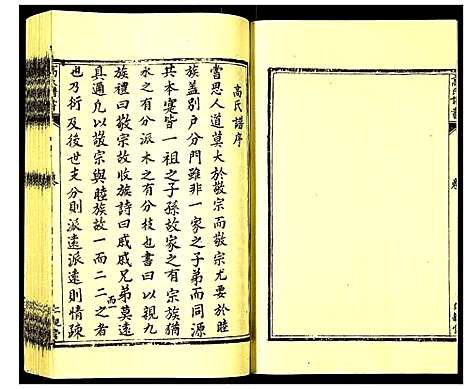 高氏譜序
嘗思人道莫大於敬宗而敬宗尤要於睦
族蓋別戶分門雖非一家之子弟而同源
共本寔皆一祖之子孫故家之有宗族猶
水之有分派木之有分枝也書曰以親九
族禮曰敬宗故收族詩曰戚戚兄弟莫遠
具邇凡以敬宗與睦族故一而二二之者而一
也乃衍及後世支分則派遠派遠則情疎
高氏譜書